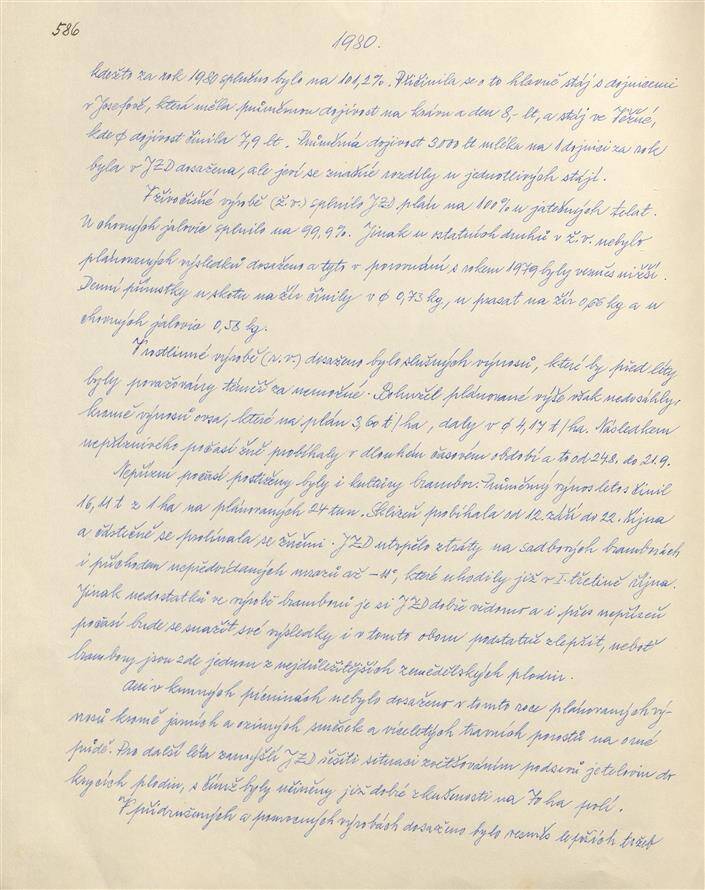 586
1980.
kdežto za rok 1980 splněno bylo na 101,2%. Přičinila se o to hlavně stáj s dojnicemi
v Josefově, která měla průměrnou dojivost na krávu a den 8,- lt, a stáj ve Věžné,
kde φ dojivost činila 7,9 lt. Průměrná dojivost 3000 lt mléka na 1 dojnici za rok
byla v JZD dosažena, ale jeví se značné rozdíly u jednotlivých stájí.
V živočišné výrobě (ž.v.) splnilo JZD plán na 100% u jatečných telat.
U chovných jalovic splnilo na 99,9%. Jinak u ostatních druhů v ž.v. nebylo
plánovaných výsledků dosaženo a tyto v porovnání s rokem 1979 byly vesměs nižší.
Denní přírustky u skotu na žír činily v φ 0,73 kg, u prasat na žír 0,66 kg a u
chovných jalovic 0,58 kg.
V rostlinné výrobě (r.v.) dosaženo bylo slušných výnosů, které by před léty
byly považovány téměř za nemožné. Bohužel plánované výše však nedosáhly,
kromě výnosů ovsa, které na plán 3,60 t/ha, daly v φ 4,17 t/ha. Následkem
nepříznivého počasí žně probíhaly v dlouhém časovém období a to od 24.8. do 21.9.
Nepřízní počasí postiženy byly i kultury brambor. Průměrný výnos letos činil
16,11 t z 1 ha na plánovaných 24 tun. Sklizeň probíhala od 12. září do 22. října
a částečně se prolínala se žněmi. JZD utrpělo ztráty na sadbových bramborách
i příchodem nepředvídaných mrazů až -11°, které uhodily již v I. třetině října.
Jinak nedostatků ve výrobě brambor je si JZD dobře vědomo a i přes nepřízeň
počasí bude se snažit své výsledky i v tomto oboru podstatně zlepšit, neboť
brambory jsou zde jednou z nejdůležitějších zemědělských plodin.
Ani v krmných pícninách nebylo dosaženo v tomto roce plánovaných vý-
nosů kromě jarních a ozimých směsek a víceletých travních porostů na orné
půdě. Pro další léta zamýšlí JZD řešiti situaci rozšiřováním podsevů jetelovin do
krycích plodin, s čímž byly učiněny již dobré zkušenosti na 70 ha polí.
V přidružených a pomocných výrobách dosaženo bylo vesměs lepších tržeb